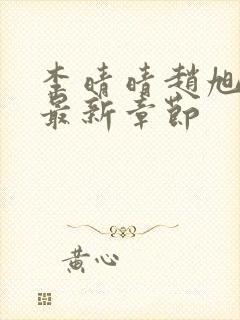 李晴晴趙旭
最新章節
黃心